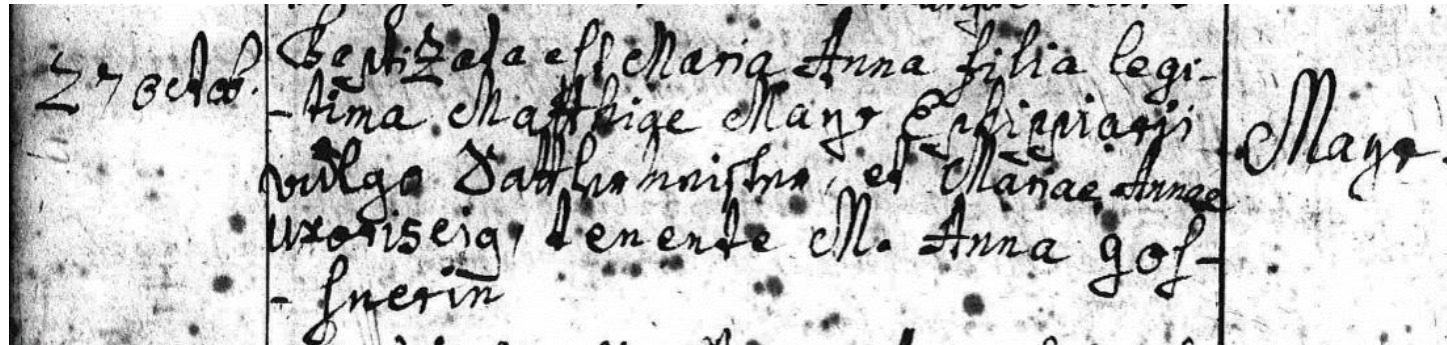 27 octob.
Baptizata est Maria Anna filia legi-
-tima Matthiae Mayr Ephippiarii
vulgo Sattlermeister, et Mariae Annae
uxoris eiq, tenente M. Anna gos-
-snerin
Mayr.